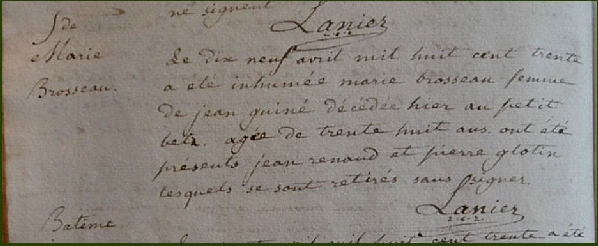 ne signent
Lanier
S de
Marie
Brosseau.
Le dix neuf avril mil huit cent trente
a été inhumée marie brosseau femme
de jean guiné décédée hier au petit
betz. agée de trente huit ans. ont été
présents jean renaud et pierre glotin
lesquels se sont retirés sans signer.
Lanier
Batême
mil huit cent trente a été